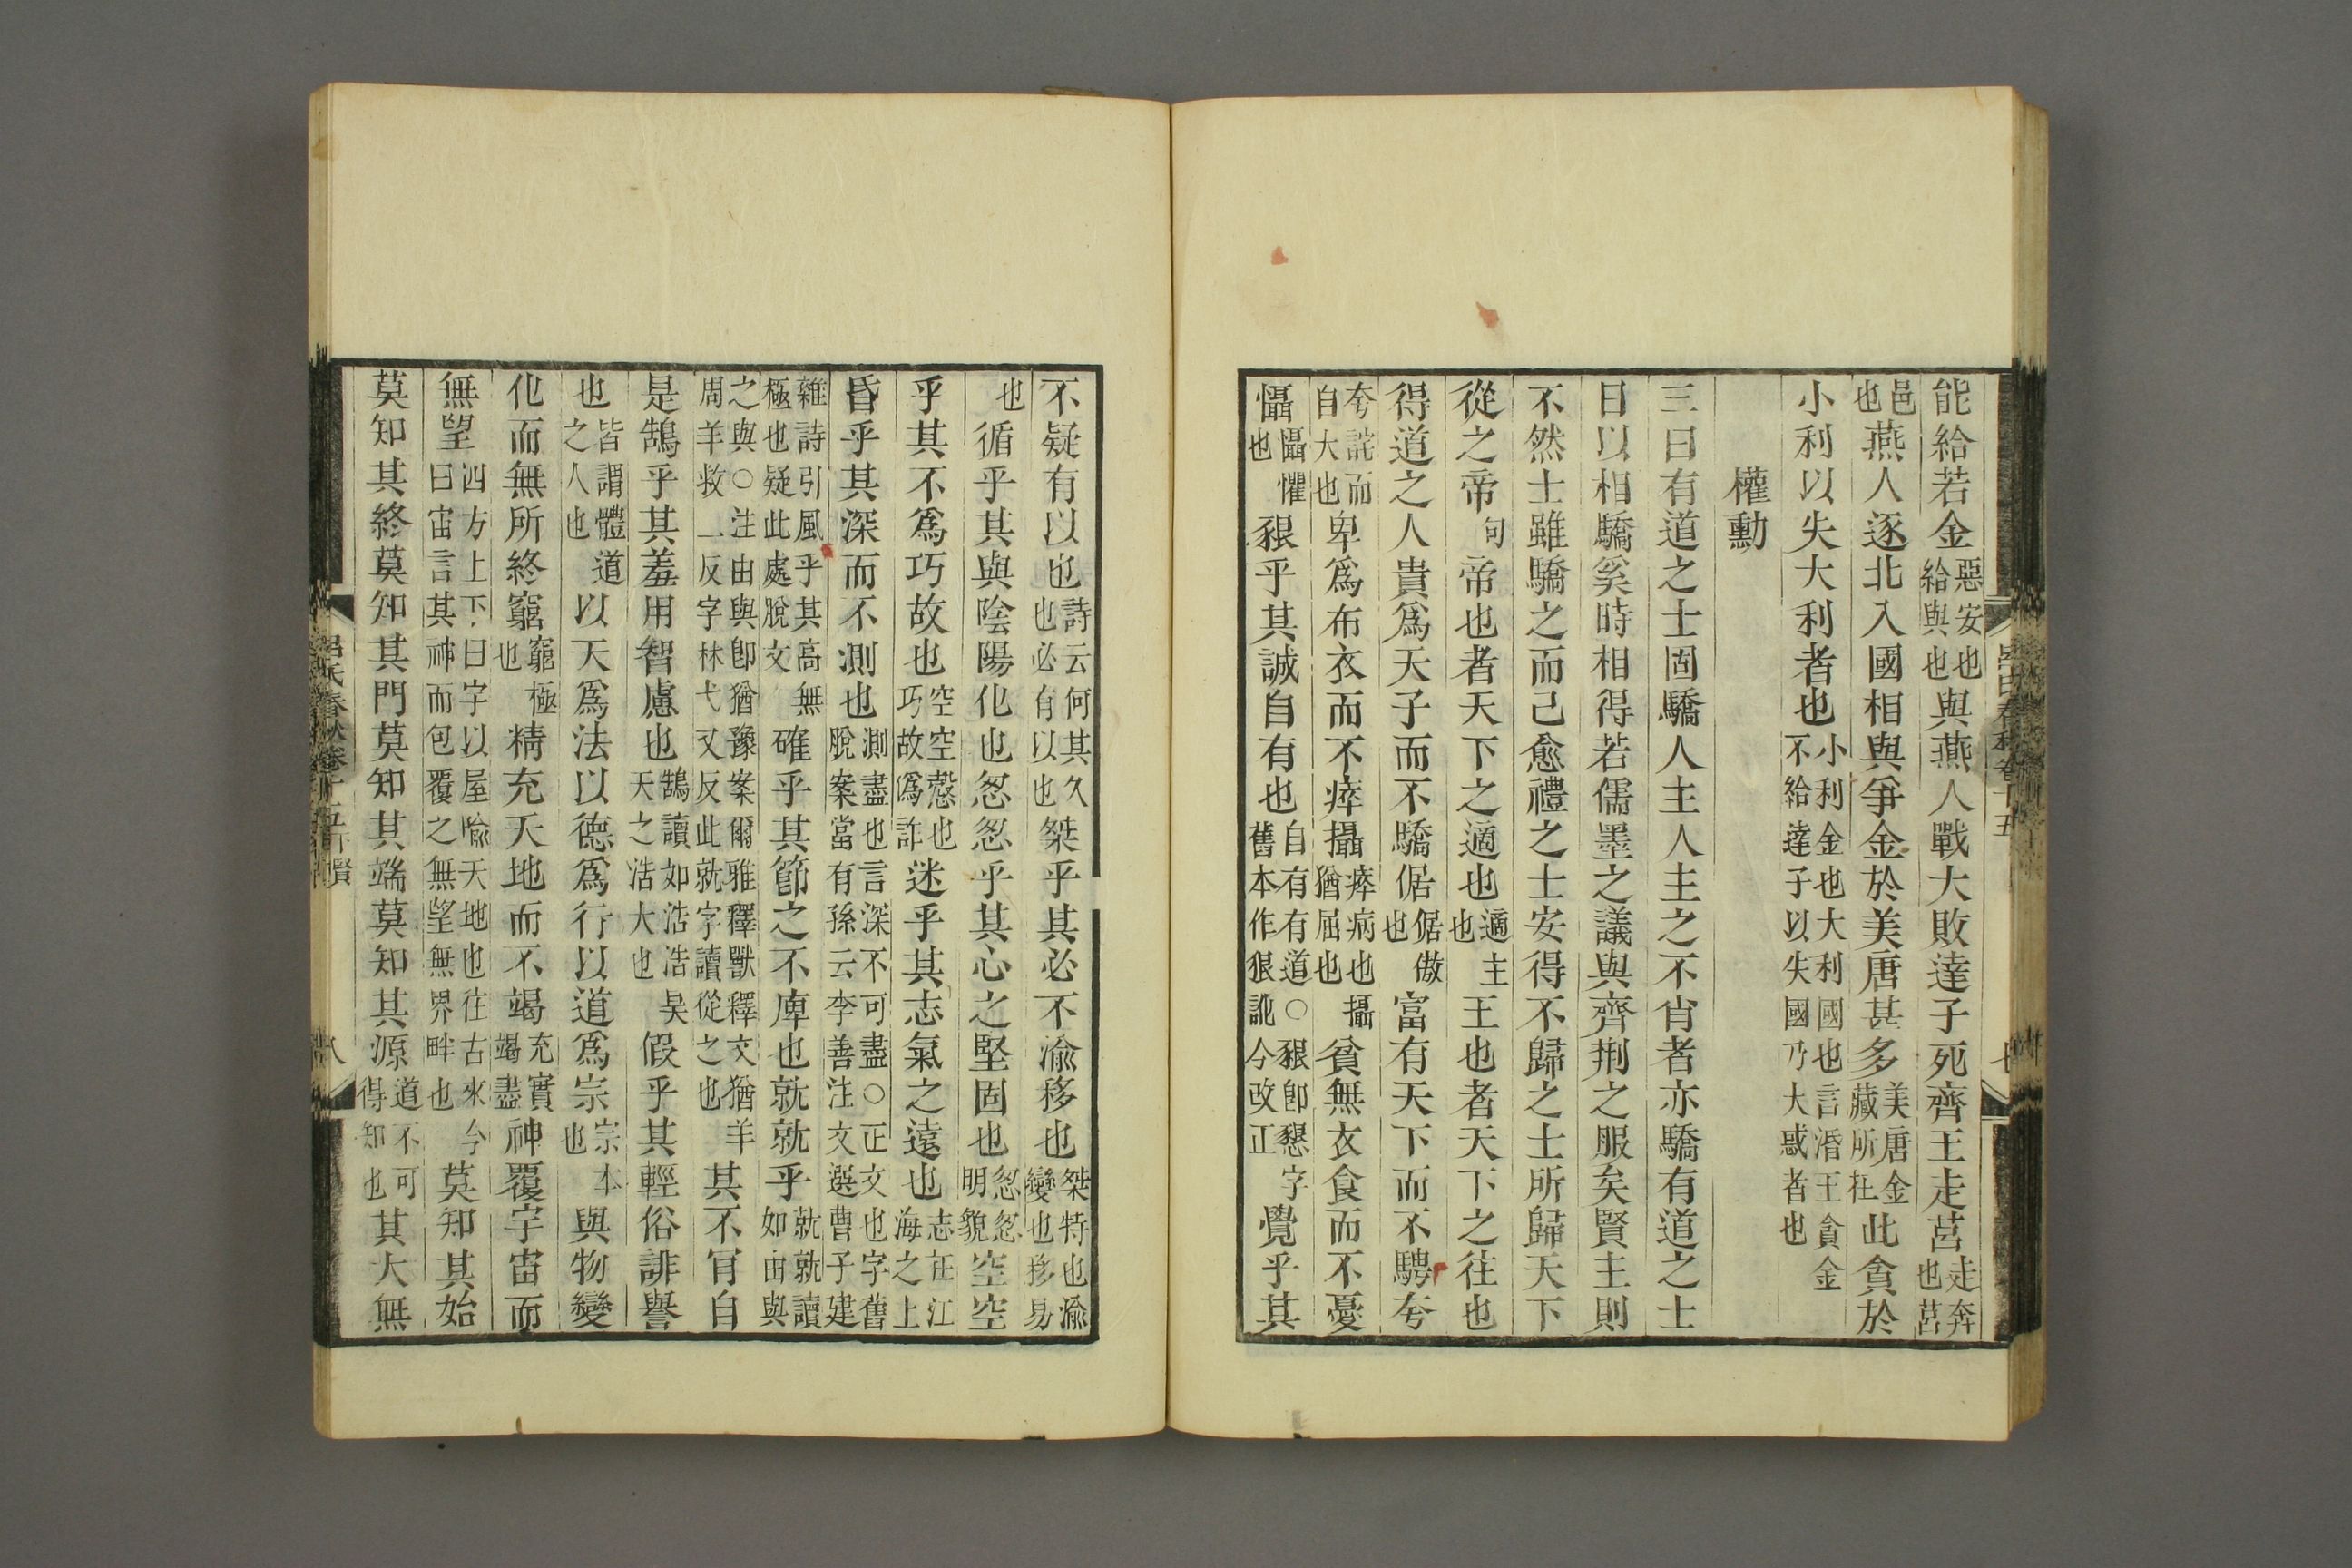 能給若金惡安也給與也與燕人戰大敗達子死齊王走莒走奔也莒
邑也燕人逐北入國相與爭金於美唐甚多美唐金藏所在此貪於
小利以失大利者也小利金也大利國也言湣王貪金不給達子以失國乃大惑者也
權勳
三曰有道之士固驕人主人主之不肖者亦驕有道之士
日以相驕奚時相得若儒墨之議與齊荆之服矣賢主則
不然士雖驕之而己愈禮之士安得不歸之士所歸天下
從之帝句帝也者天下之適也適主也王也者天下之往也
得道之人貴爲天子而不驕倨倨傲也富有天下而不騁夸
夸詫而自大也卑爲布衣而不瘁攝瘁病也攝猶屈也貧無衣食而不憂
懾懾懼也豤乎其誠自有也自有有道○豤卽懇字舊本作狠訛今改正覺乎其
不疑有以也詩云何其久也必有以也桀乎其必不渝移也桀特也渝變也移易
也循乎其與陰陽化也怱怱乎其心之堅固也怱怱明貌空空
乎其不爲巧故也空空慤也巧故僞詐迷乎其志氣之遠也志在江海之上
昏乎其深而不測也測盡也言深不可盡○正文也字舊脫案當有孫云李善注文選曹子建
雜詩引風乎其高無極也疑此處脫文確乎其節之不庳也就就乎就就讀如由與
之與○注由與卽猶豫案爾雅釋獸釋文猶羊周羊救二反字林弋又反此就字讀從之也其不肎自
是鵠乎其羞用智慮也鵠讀如浩浩昊天之浩大也假乎其輕俗誹譽
也皆謂體道之人也以天爲法以德爲行以道爲宗宗本也與物變
化而無所終窮窮極也精充天地而不竭充實竭盡神覆宇宙而
無望四方上下曰宇以屋喻天地也往古來今曰宙言其神而包覆之無望無界畔也莫知其始
莫知其終莫知其門莫知其端莫知其源道不可得知也其大無
呂氏春秋卷十五 八